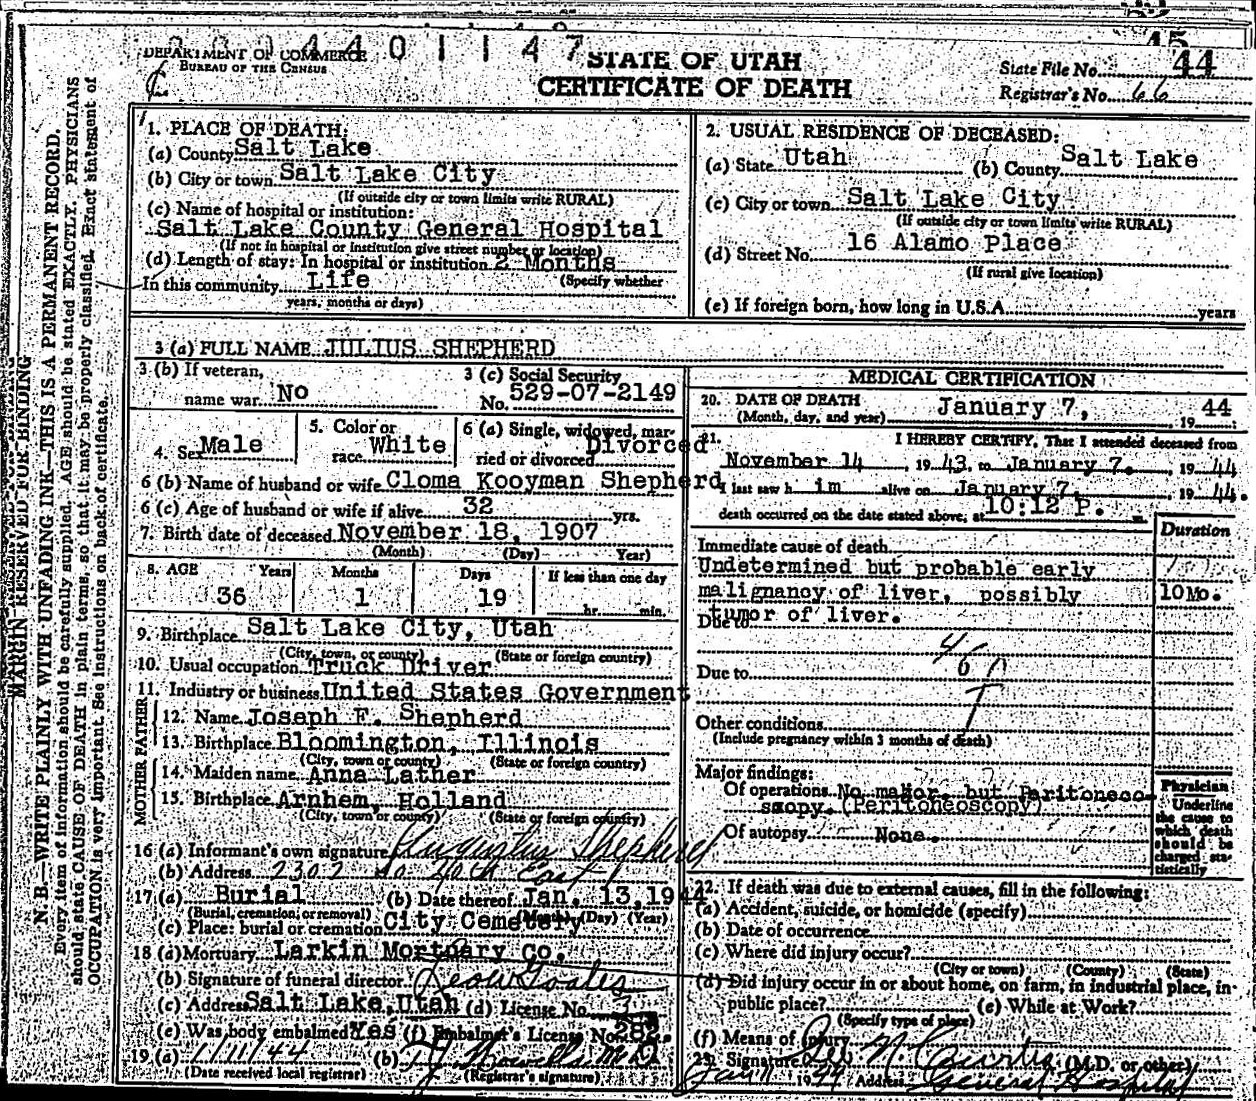 4 4 0 1 1 4 7
DEPARTMENT OF COMMERCE
BUREAU OF THE CENSUS
STATE OF UTAH
CERTIFICATE OF DEATH
State File No. 44
Registrar's No. 66
MARGIN RESERVED FOR BINDING
N. B.—WRITE PLAINLY WITH UNFADING INK—THIS IS A PERMANENT RECORD.
Every item of information should be carefully supplied. AGE should be stated EXACTLY. PHYSICIANS
should state CAUSE OF DEATH in plain terms, so that it may be properly classified. Exact statement of
OCCUPATION is very important. See instructions on back of certificate.
1. PLACE OF DEATH:
(a) County Salt Lake
(b) City or town Salt Lake City
(If outside city or town limits write RURAL)
(c) Name of hospital or institution:
Salt Lake County General Hospital
(If not in hospital or institution give street number or location)
(d) Length of stay: In hospital or institution 2 Months
(Specify whether
In this community Life
years, months or days)
2. USUAL RESIDENCE OF DECEASED:
(a) State Utah (b) County Salt Lake
(c) City or town Salt Lake City
(If outside city or town limits write RURAL)
(d) Street No. 16 Alamo Place
(If rural give location)
(e) If foreign born, how long in U.S.A. years
3 (a) FULL NAME JULIUS SHEPHERD
3 (b) If veteran,
name war No
3 (c) Social Security
No. 529-07-2149
4. Sex Male
5. Color or
race White
6 (a) Single, widowed, mar-
ried or divorced Divorced
6 (b) Name of husband or wife Cloma Kooyman Shepherd
6 (c) Age of husband or wife if alive 32 yrs.
7. Birth date of deceased November 18, 1907
(Month) (Day) Year)
8. AGE Years Months Days If less than one day
36 1 19 hr. min.
9. Birthplace Salt Lake City, Utah
(City, town, or county) (State or foreign country)
10. Usual occupation Truck Driver
11. Industry or business United States Government
FATHER
12. Name Joseph F. Shepherd
13. Birthplace Bloomington, Illinois
(City, town or county) (State or foreign country)
MOTHER
14. Maiden name Anna Lather
15. Birthplace Arnhem, Holland
(City, town or county) (State or foreign country)
16 (a) Informant's own signature Augustus Shepherd
(b) Address 2302 So. 40th East
17 (a) Burial (b) Date thereof Jan. 13, 1944
(Burial, cremation, or removal) (Month) (Day) (Year)
(c) Place: burial or cremation City Cemetery
18 (a) Mortuary Larkin Mortuary Co.
(b) Signature of funeral director
(c) Address Salt Lake, Utah (d) License No.
(e) Was body embalmed? Yes (f) Embalmer's License No. 282.
19 (a) 1/11/44 (b) M.D.
(Date received local registrar) (Registrar's signature)
MEDICAL CERTIFICATION
20. DATE OF DEATH January 7, 44
(Month, day, and year) 19
21. I HEREBY CERTIFY, That I attended deceased from
November 14, 1943, to January 7, 1944
I last saw him alive on January 7, 1944.
death occurred on the date stated above, at 10:12 P. m.
Duration
Immediate cause of death
Undetermined but probable early
malignancy of liver, possibly 10 Mo.
Due to tumor of liver.
Due to
Other conditions
(Include pregnancy within 3 months of death)
Major findings:
Of operations No major but Peritoneo-
scopy. (Peritoneoscopy)
Of autopsy None.
Physician
Underline
the cause to
which death
should be
charged sta-
tistically
22. If death was due to external causes, fill in the following:
(a) Accident, suicide, or homicide (specify)
(b) Date of occurrence
(c) Where did injury occur?
(City or town) (County) (State)
(d) Did injury occur in or about home, on farm, in industrial place, in
public place? (e) While at Work?
(Specify type of place)
(f) Means of injury
23. Signature (M.D. or other)
Jan 11 1944 Address General Hospital